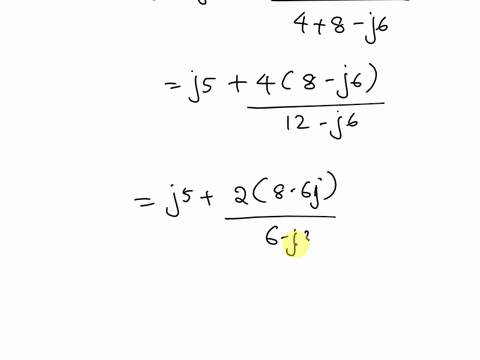 4+8-j6
= j5 + 4(8-j6)
12-j6
= j5 + 2(8-6j)
6-j3